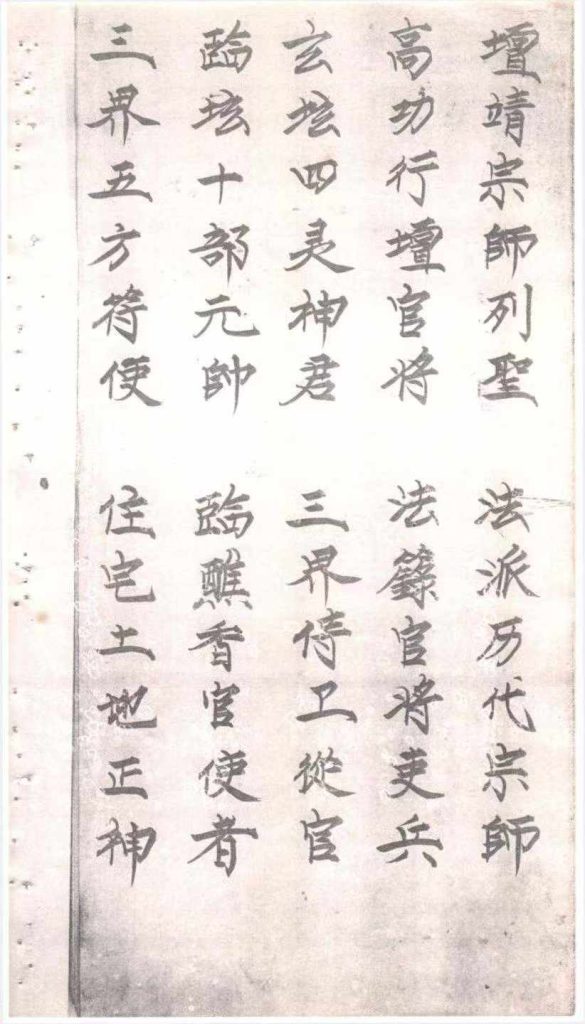 壇靖宗師列聖 法派历代宗師
高功行壇官将 法籙官将吏兵
玄坛四灵神君 三界侍卫從官
臨坛十部元帥 臨醮香官使者
三界五方符使 住宅土地正神